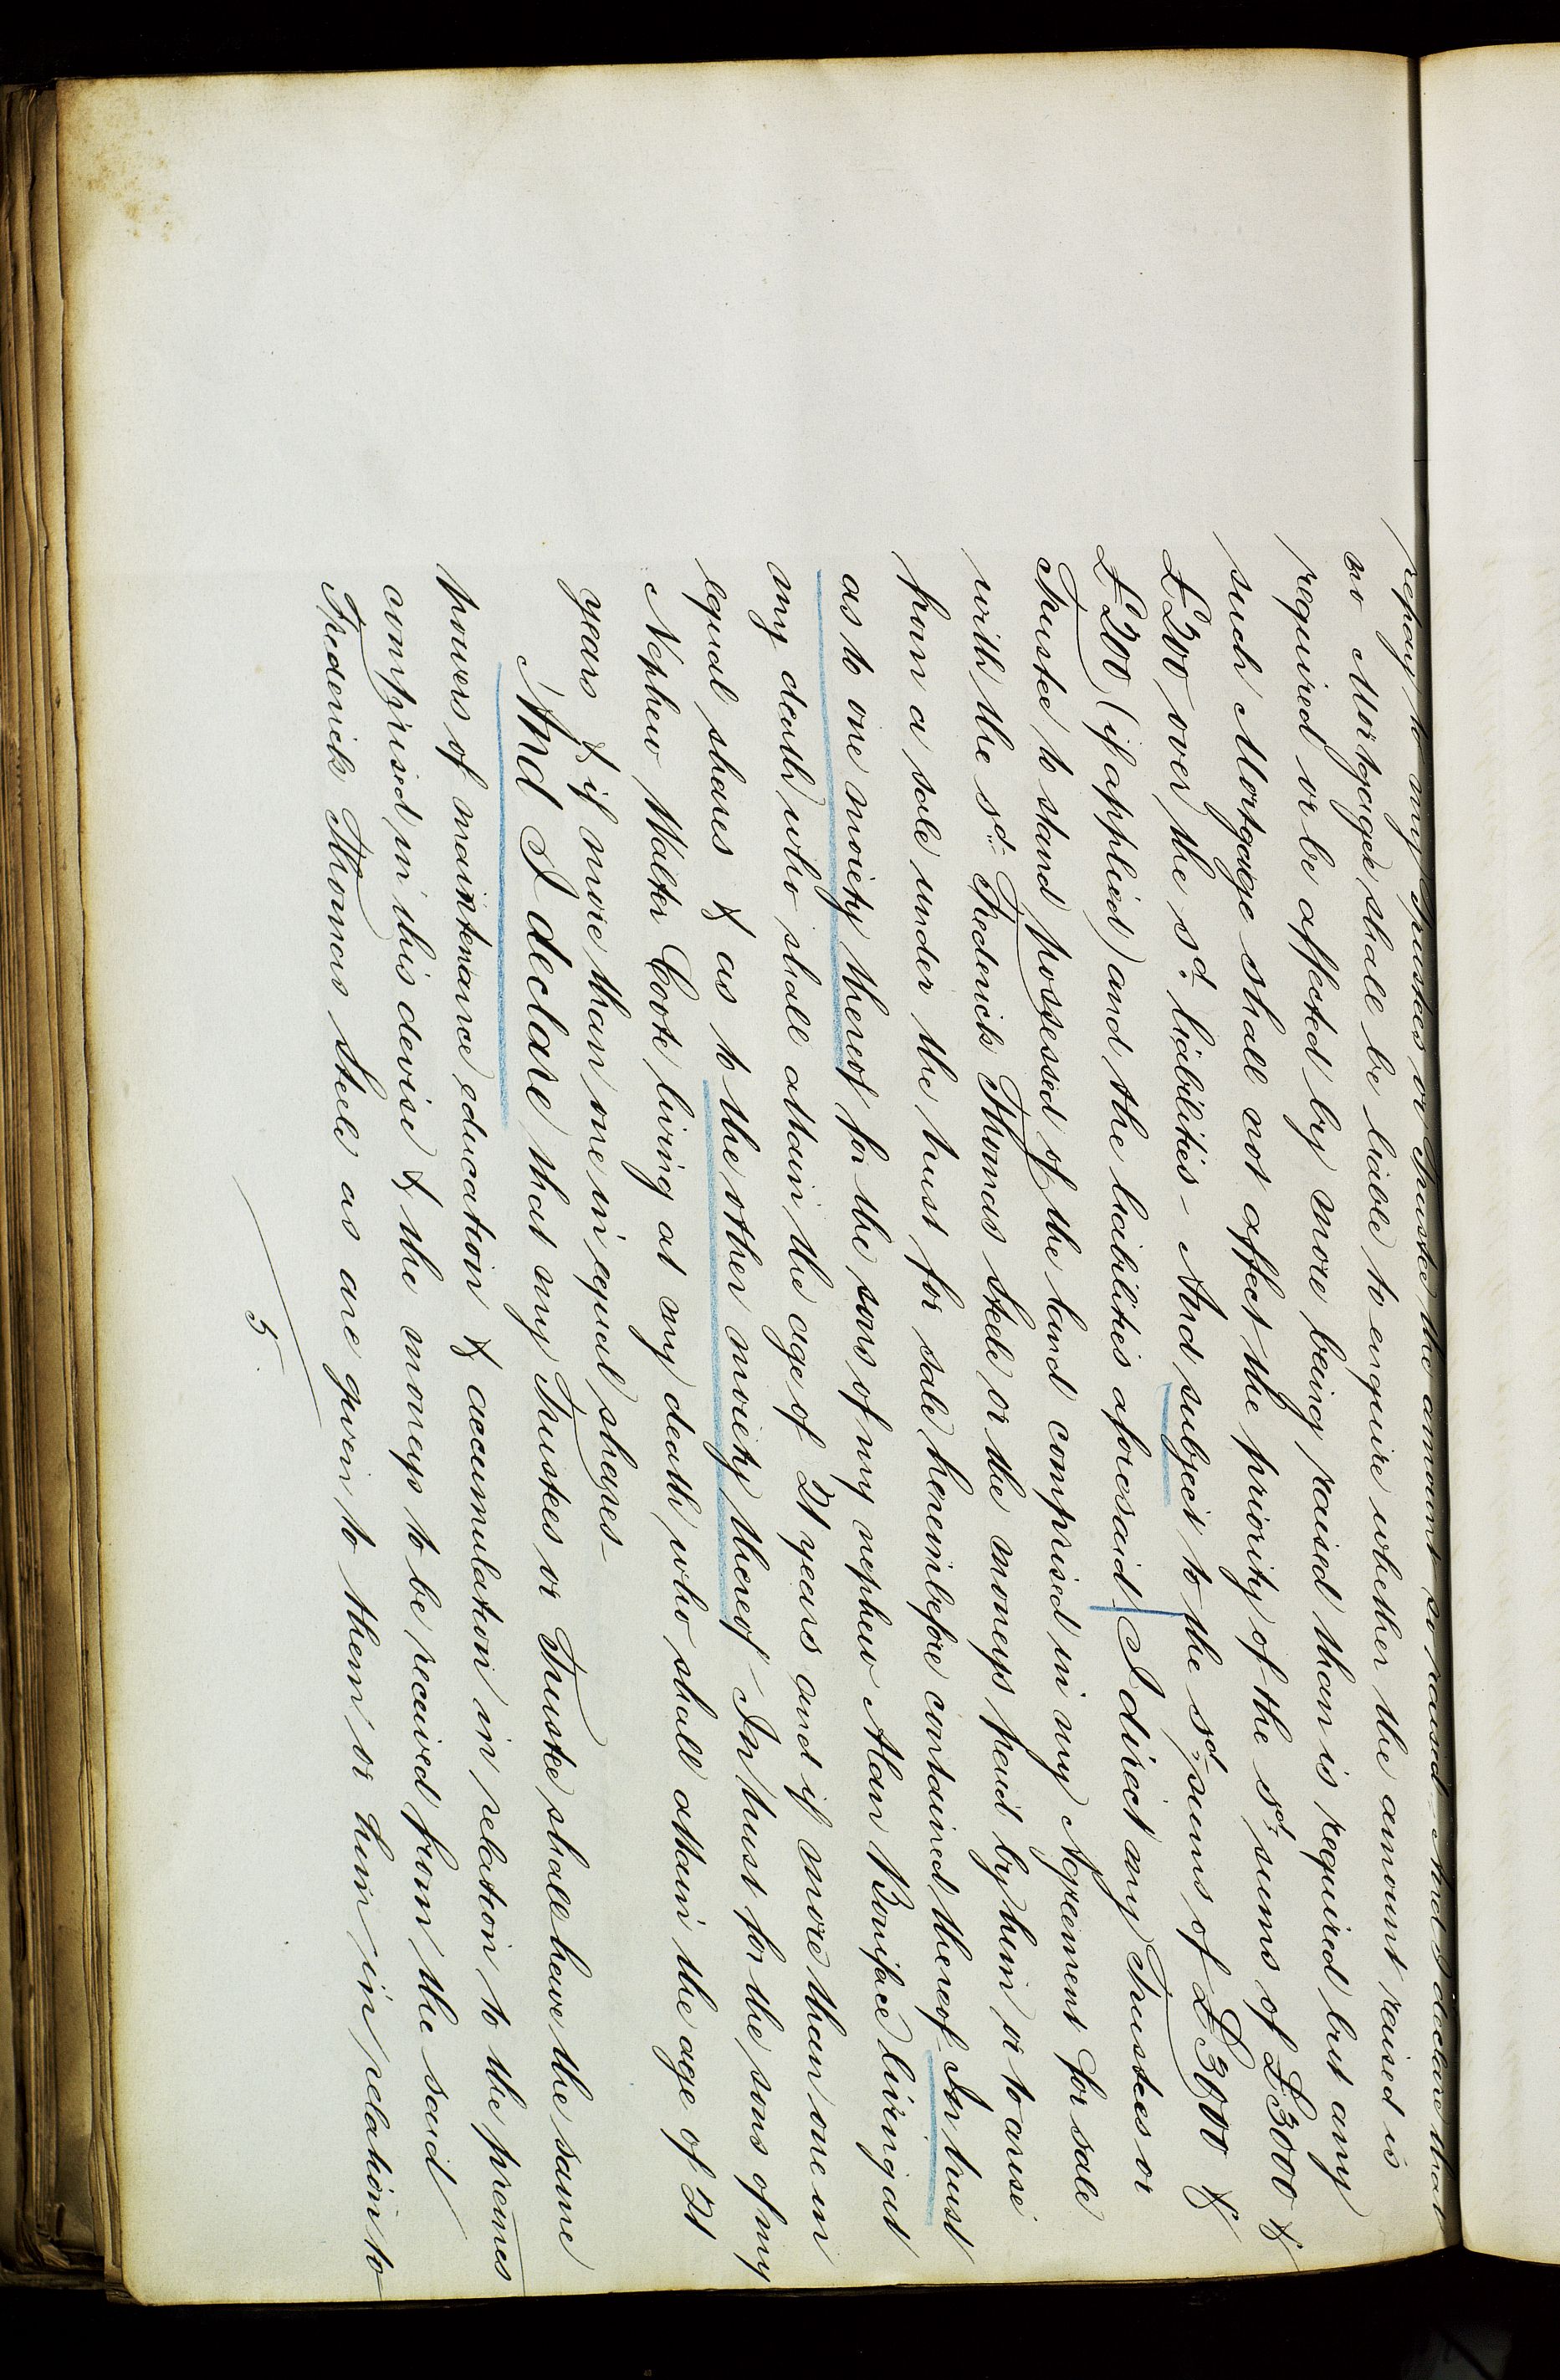 repay to my Trustees or Trustee the amount so raised And I declare that
no Mortgagee shall be liable to enquire whether the amount raised is
required or be affected by more being raised than is required but any
such Mortgage shall not affect the priority of the sd. sums of £3000 &
£200 over the sd. liabilities - And subject to the sd. sums of £3000 &
£200 (if applied) and the liabilities aforesaid I direct my Trustees or
Trustee to stand possessed of the land comprised in my Agreement for sale
with the sd. Frederick Thomas Steele or the moneys paid by him or to arise
from a sale under the trust for sale hereinbefore contained thereof In trust
as to one moiety thereof for the sons of my nephew Alan Boniface living at
my death who shall attain the age of 21 years and if more than one in
equal shares & as to the other moiety thereof In trust for the sons of my
Nephew Walter Coote living at my death who shall attain the age of 21
years & if more than one in equal shares -
And I declare that my Trustees or Trustee shall have the same
powers of maintenance education & accumulation in relation to the premes
comprised in this devise & the moneys to be received from the said
Frederick Thomas Steele as are given to them or him in relation to
5.